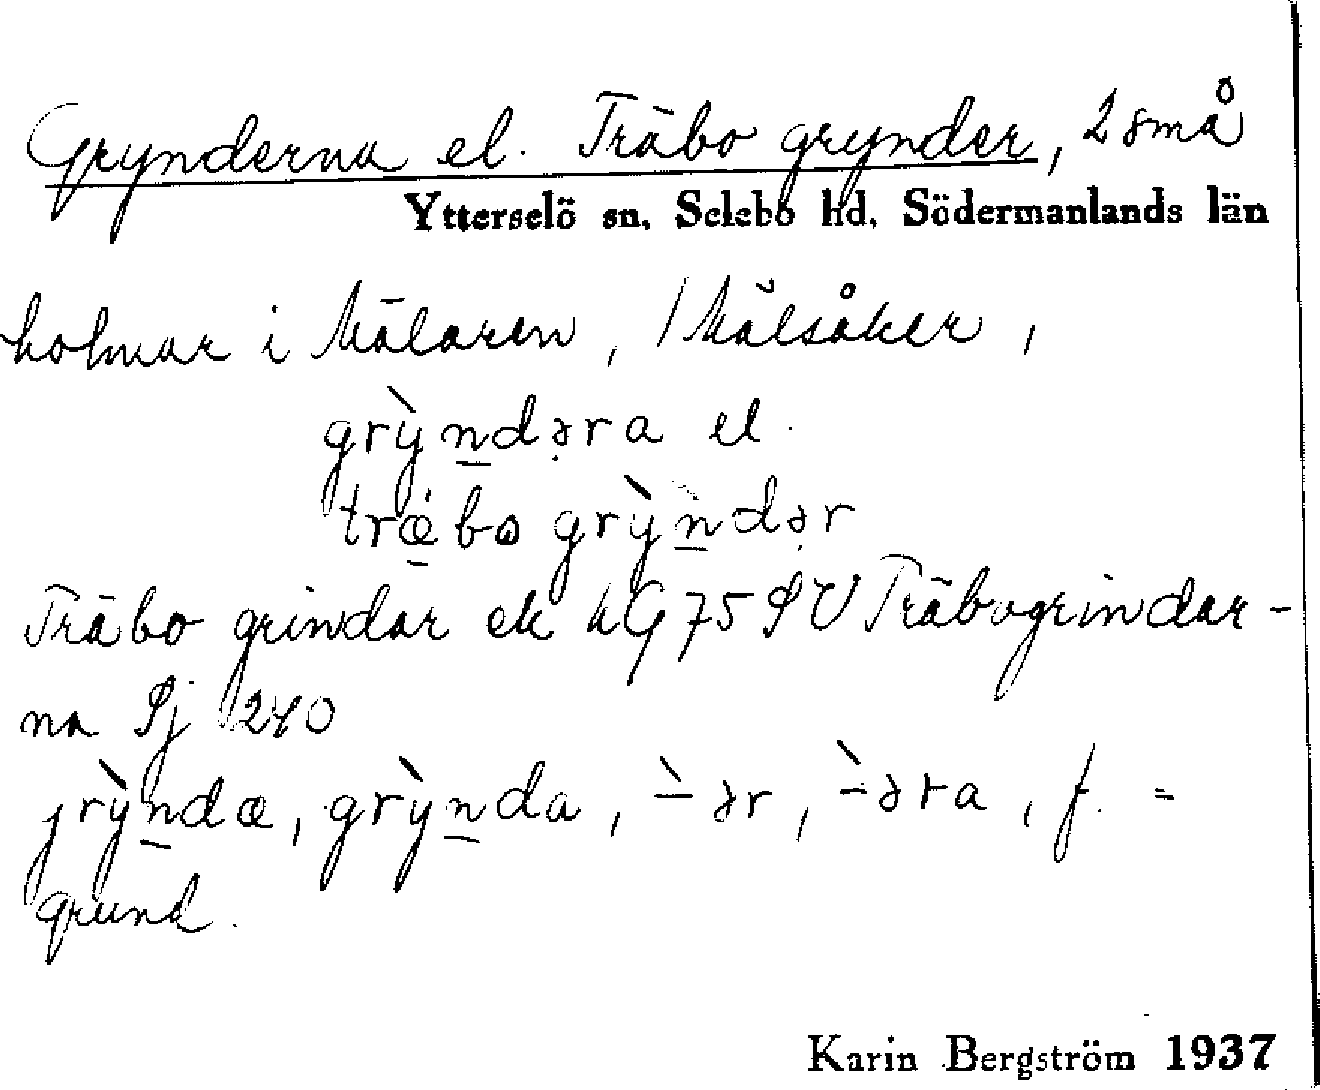 Grynderna el. Träbo grynder, 2 små
Ytterselö sn. Selebo hd. Södermanlands län
holmar i Mälaren, / Mälsåker,
grỳndəra el.
træ̀bo grỳndər
Träbo grindar ek hG 75 SV Träbogrindar-
na Sj 240
grỳndæ, grỳnda, -̀ər, -̀əra, f. =
grund.
Karin Bergström 1937